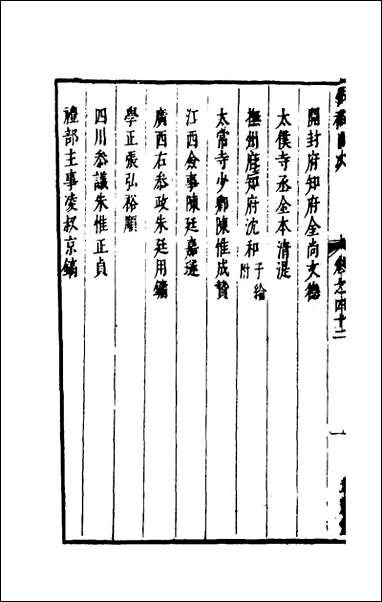 開封府知府全尚文懋
太僕寺丞全本清湜
撫州府知府沈和子綸附
太常寺少卿陳惟成贄
江西僉事陳廷嘉璲
廣西右叅政朱廷用鏞
學正張弘裕順
四川叅議朱惟正貞
禮部主事凌叔京鎬
卷之四十二